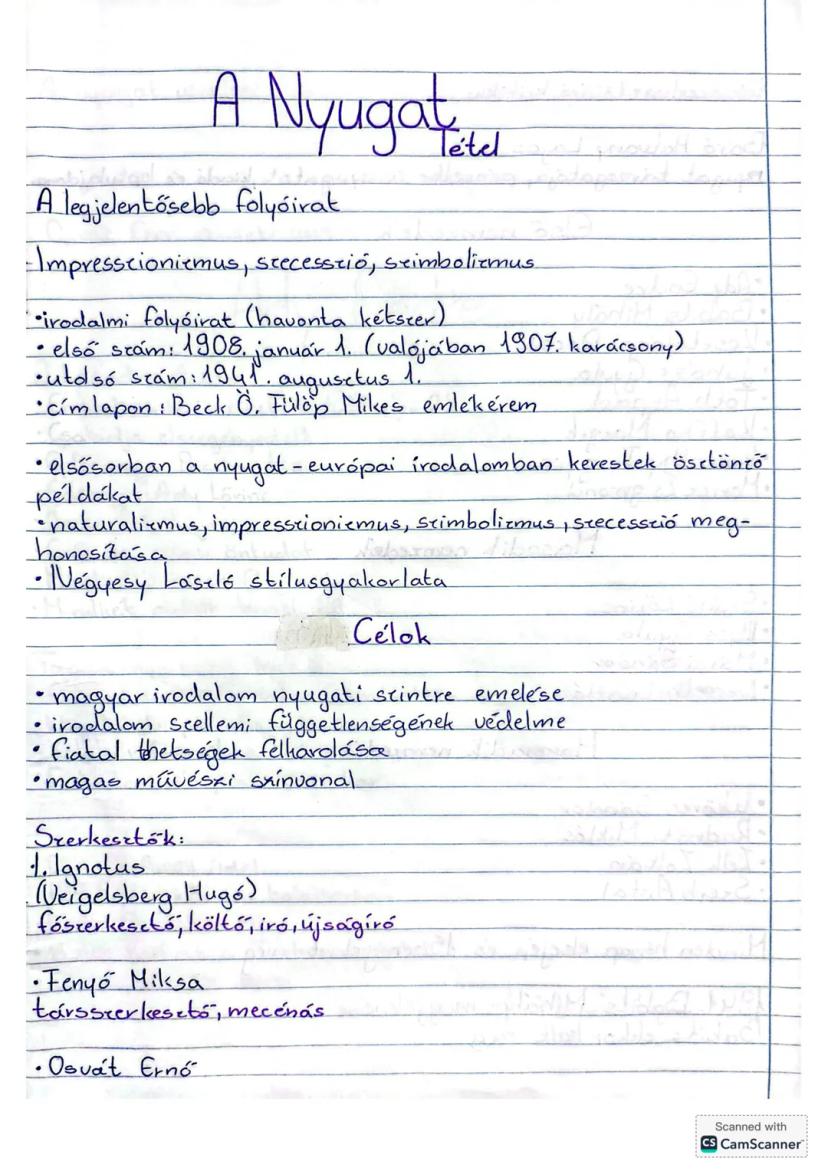 A Nyugat
Tétel
A legjelentősebb folyóirat
Impresszionizmus, szecesszió, szimbolizmus
•irodalmi folyóirat (havonta kétszer)
• első szám: 1908. január 1. (valójában 1907. karácsony)
•utolsó szám: 1941. augusztus 1.
•címlapon: Beck Ö. Fülöp Mikes emlékérem
•elsősorban a nyugat-európai irodalomban kerestek ösztönző
példákat
•naturalizmus, impresszionizmus, szimbolizmus, szecesszió meg-
honosítása
• Négyesy László stílusgyakorlata
Célok
• magyar irodalom nyugati szintre emelése
• irodalom szellemi függetlenségének védelme
• fiatal thetségek felkarolása
•magas művészi színvonal
Szerkesztők:
1. Ignotus
(Veigelsberg Hugó)
főszerkesztő, költő, iró, újságíró
•Fenyő Miksa
társszerkesztő, mecénás
•Osvát Ernő
Scanned with
CS CamScanner